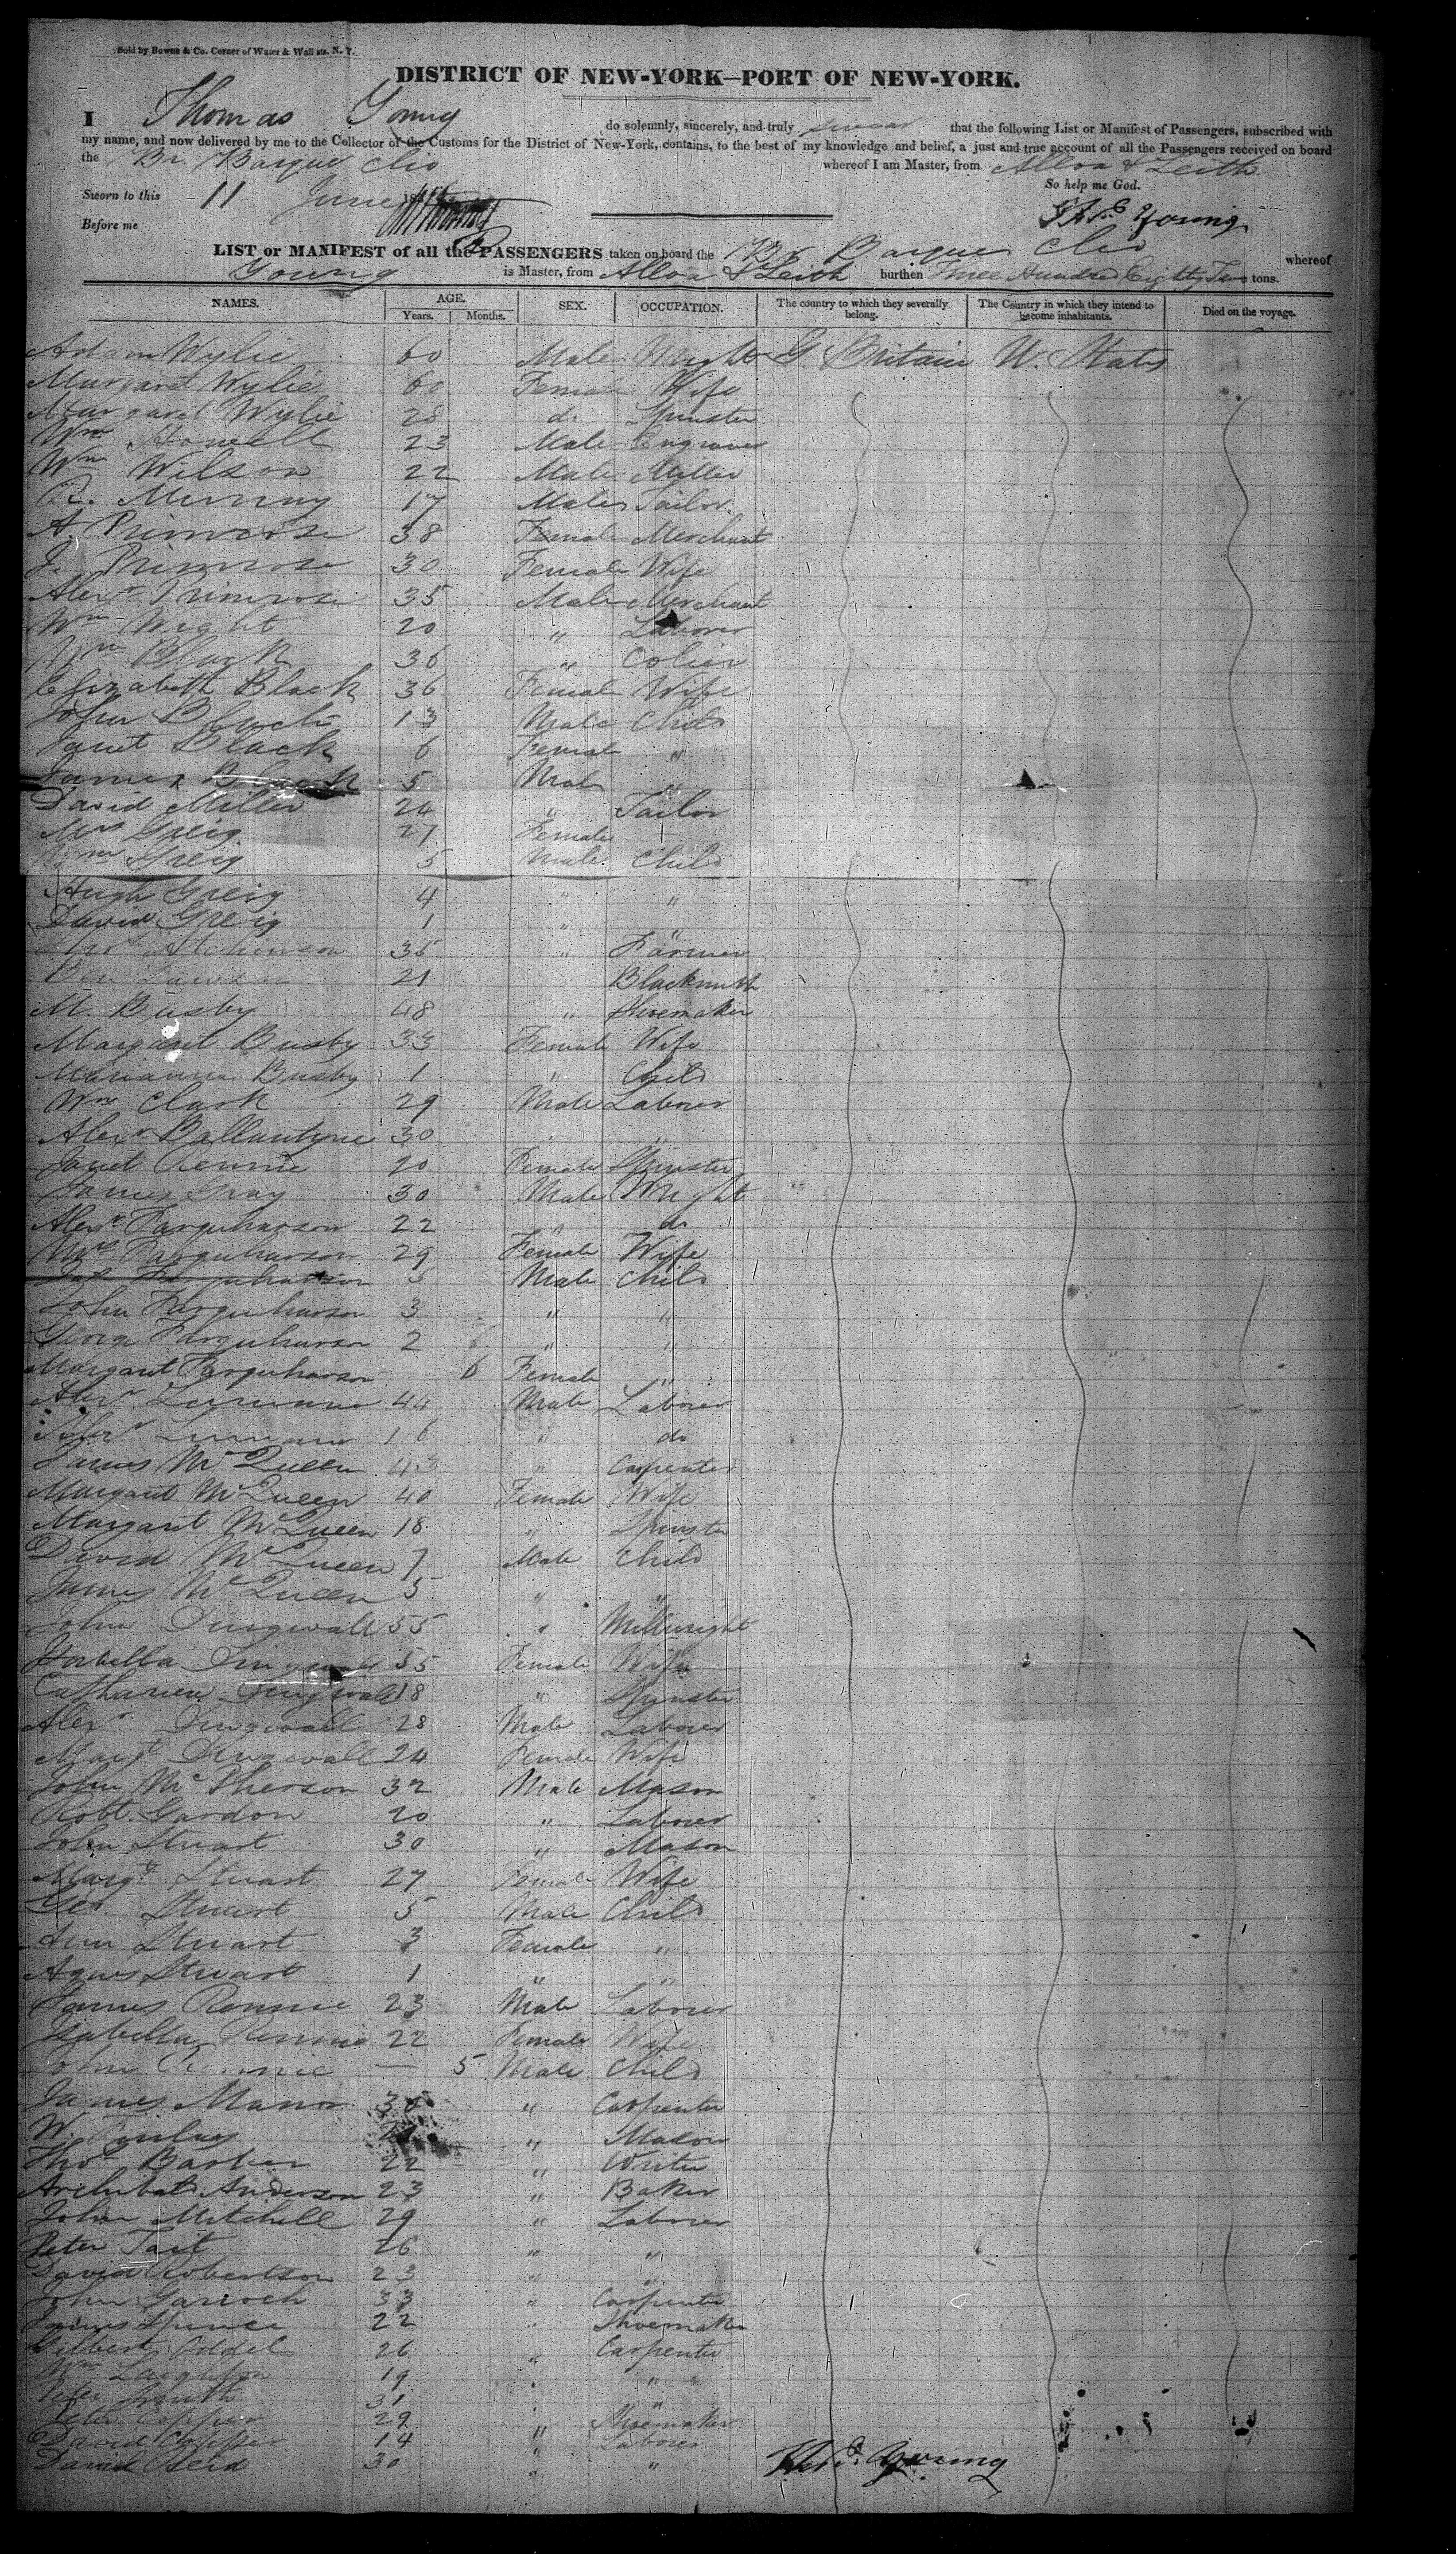 Sold by Bowne & Co. Corner of Water & Wall sts. N. Y.
DISTRICT OF NEW-YORK—PORT OF NEW-YORK.
I Thomas Young do solemnly, sincerely, and truly swear that the following List or Manifest of Passengers, subscribed with
my name, and now delivered by me to the Collector of the Customs for the District of New-York, contains, to the best of my knowledge and belief, a just and true account of all the Passengers received on board
the Br. Barque Clio whereof I am Master, from Alloa & Leith
So help me God.
Sworn to this 11 June
Young
Before me
LIST or MANIFEST of all the PASSENGERS taken on board the Br. Barque Clio whereof
Young is Master, from Alloa & Leith burthen Three Hundred Eighty Two tons.
NAMES. AGE. SEX. OCCUPATION. The country to which they severally belong. The Country in which they intend to become inhabitants. Died on the voyage.
Years. Months.
Adam Wylie 60 Male Wright G. Britain U. States
Margaret Wylie 60 Female Wife
Margaret Wylie 28 do Spinster
Wm Howell 23 Male Engraver
Wm Wilson 22 Male Miller
R. Murray 17 Male Tailor
A. Primrose 38 Female Merchant
J. Primrose 30 Female Wife
Alexr Primrose 35 Male Merchant
Wm Wight 20 " Laborer
Wm Black 36 " Colier
Elizabeth Black 36 Female Wife
John Black 13 Male Child
Janet Black 6 Female "
James Black 5 Male "
David Miller 24 " Tailor
Mrs Greig 27 Female
Wm Greig 5 Male Child
Hugh Greig 4 " "
David Greig 1 "
Hutchinson 35 " Farmer
21 Blacksmith
M. Busby 48 " Shoemaker
Margaret Busby 33 Female Wife
Marianna Busby 1 " Child
Wm Clark 29 Male Laborer
Alexr Ballantyne 30 " "
Janet Rennie 20 Female Spinster
James Gray 30 Male Wright
Alexr Farquharson 22 " do
Mrs Farquharson 29 Female Wife
Jas Farquharson 5 Male Child
John Farquharson 3 " "
George Farquharson 2 " "
Margaret Farquharson 6 Female "
Alexr 44 Male Laborer
16 " do
James McQueen 43 " Carpenter
Margaret McQueen 40 Female Wife
Margaret McQueen 18 " Spinster
David McQueen 7 Male Child
James McQueen 5 " "
John Dingwall 55 " Millwright
Isabella Dingwall 55 Female Wife
Catharine Dingwall 18 " Spinster
Alexr Dingwall 28 Male Laborer
Margt Dingwall 24 Female Wife
John McPherson 32 Male Mason
Robt Gordon 20 " Laborer
John Stuart 30 " Mason
Margt Stuart 27 Female Wife
Geo Stuart 5 Male Child
Ann Stuart 3 Female "
Agnes Stuart 1 " "
James Rennie 23 Male Laborer
Isabella Rennie 22 Female Wife
John Rennie — 5 Male Child
James Manor 30 " Carpenter
W. Finlay " Mason
Thos Barber 22 " Writer
Archibald Anderson 23 " Baker
John Mitchell 29 " Laborer
Peter Tait 26 " "
David Robertson 23 " "
John Garroch 33 " Carpenter
James Spence 22 " Shoemaker
Gilbert 26 " Carpenter
Wm Laighton 19 "
Peter Smith 31 " "
Peter Copper 29 " Shoemaker
David Copper 14 " Laborer
David Reid 30 " "
Young